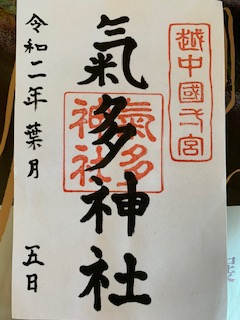 越中國弌宮
氣多神社
氣多
神社
令和二年 葉月 五日